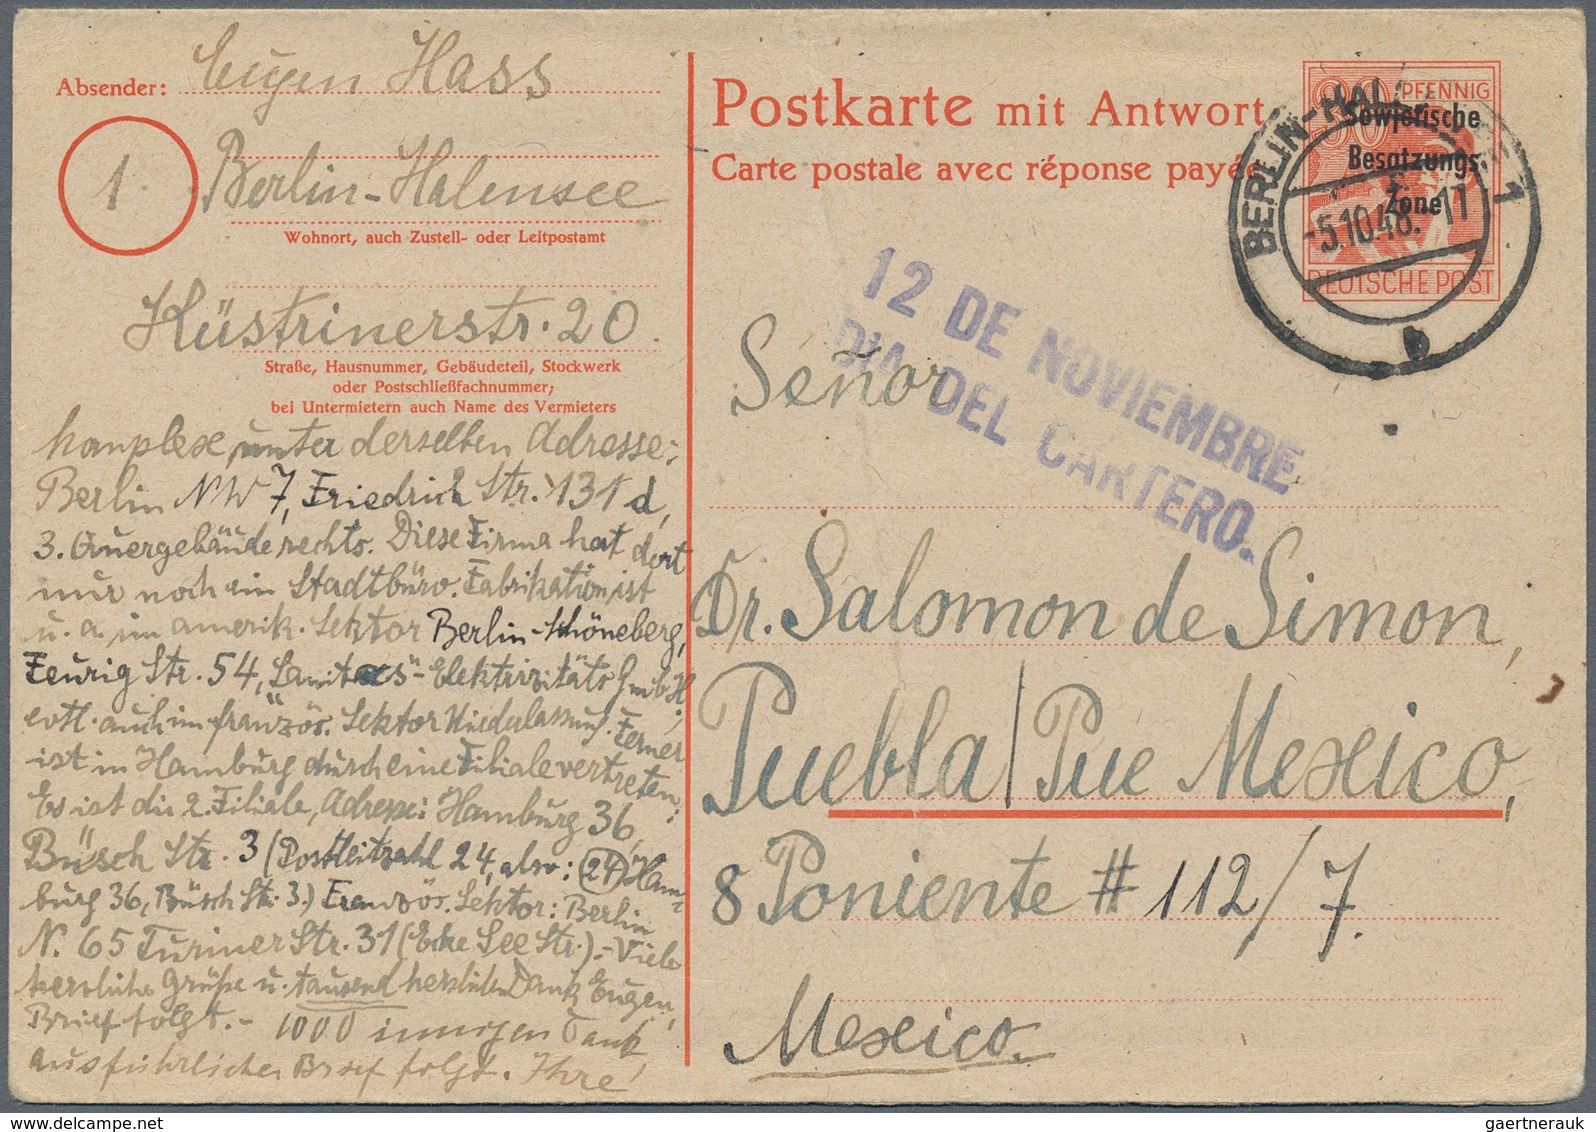 Absender: Eugen Hass
1
Berlin-Halensee
Wohnort, auch Zustell- oder Leitpostamt
Küstrinerstr. 20
Straße, Hausnummer, Gebäudeteil, Stockwerk
oder Postschließfachnummer;
bei Untermietern auch Name des Vermieters
komplexe, unter derselben Adresse:
Berlin NW 7, Friedrich Str. 131 d,
3. Quergebäude rechts. Diese Firma hat dort
nur noch ein Stadtbüro. Fabrikation ist
u. a. im amerik. Sektor Berlin-Schöneberg,
Feurig Str. 54, Elektrizitäts GmbH,
evtl. auch im französ. Sektor Niederlassung. Ferner
ist in Hamburg durch eine Filiale vertreten:
Es ist die 2. Filiale, Adresse: Hamburg 36,
Büsch Str. 3 (Postleitzahl 24, also: 24 Ham-
burg 36, Büsch Str. 3.) Französ. Sektor: Berlin
N. 65 Turiner Str. 31 (Ecke See Str.).- Viele
herzliche Grüße u. tausend herzlichen Dank Eugen,
Brief folgt.- 1000 innigen Dank,
ausführlicher Brief folgt. Ihre
Postkarte mit Antwort
Carte postale avec réponse payé
80 PFENNIG
DEUTSCHE POST
Sowjetische
Besatzungs-
Zone
BERLIN-HALENSEE 1
-5.10.48.-17
b
12 DE NOVIEMBRE
DIA DEL CARTERO.
Señor
Dr. Salomon de Simon,
Puebla / Pue Mexico,
8 Poniente # 112/7.
Mexico.
gaertnerauk